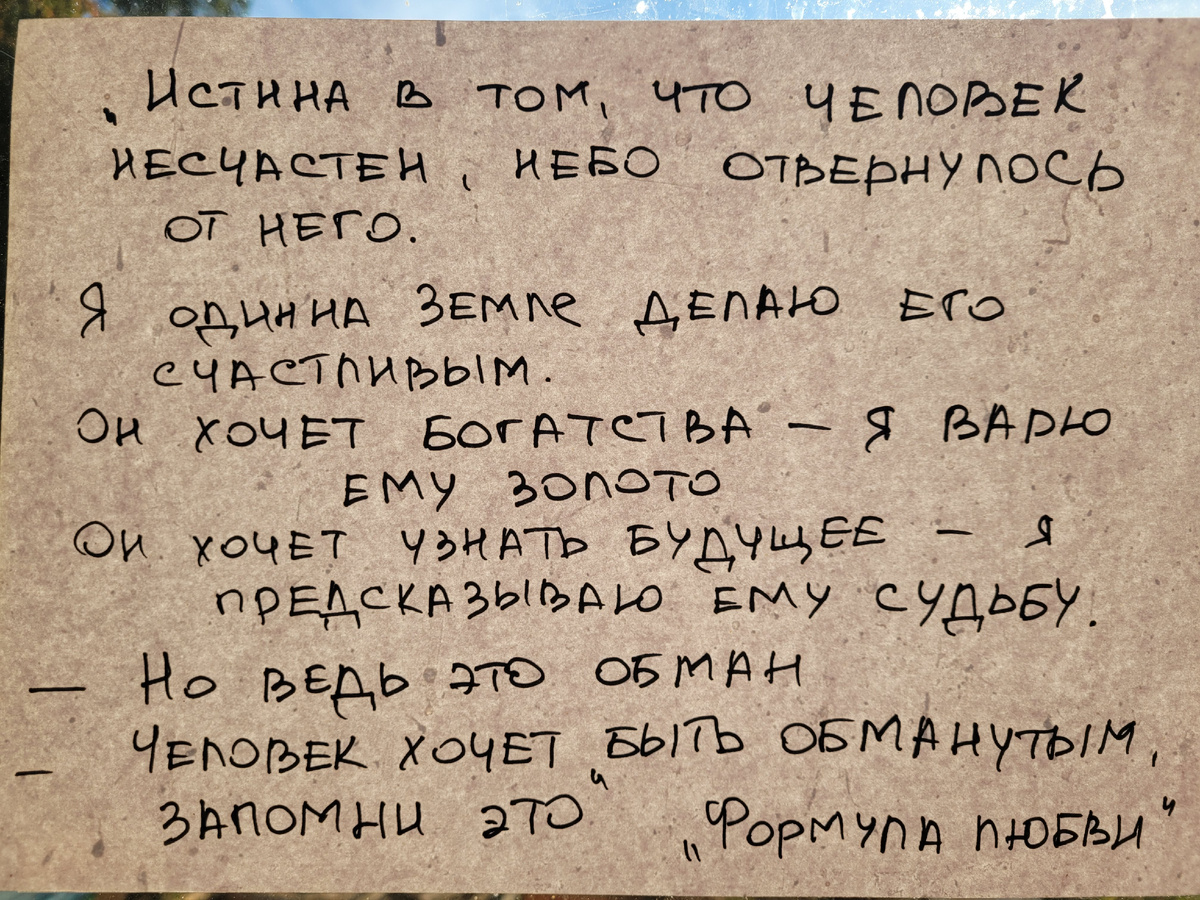 „Истина в том, что человек
несчастен, небо отвернулось
от него.
Я один на Земле делаю его
счастливым.
Он хочет богатства – я варю
ему золото
Он хочет узнать будущее – я
предсказываю ему судьбу.
— Но ведь это обман
– Человек хочет быть обманутым,
запомни это“ „Формула любви“